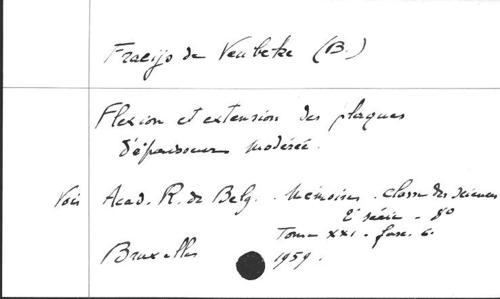 Fraeijs de Veubeke (B.)
Flexion et extension des plaques
d'épaisseur modérée.
Voir Acad. R. de Belg. - Mémoires - Classe des Sciences
2e série - 8°
Tome XXXI - fasc. 6.
Bruxelles 1959.